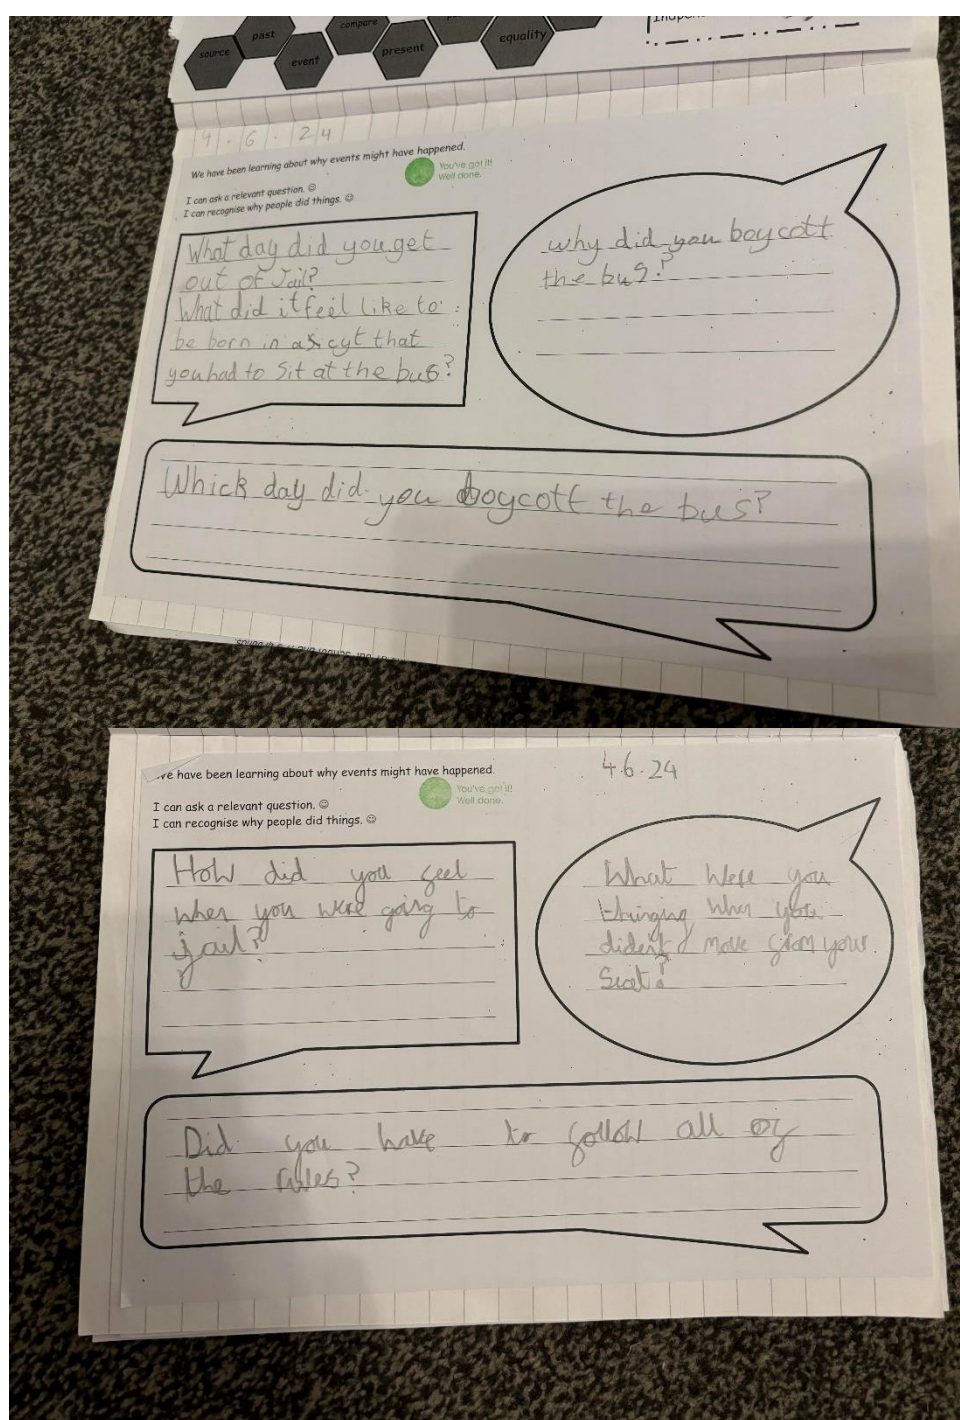 source
past
event
compare
present
equality
4.6.24
We have been learning about why events might have happened.
You've got it!
Well done.
I can ask a relevant question. ☺
I can recognise why people did things. ☺
What day did you get
out of Jail?
What did it feel like to
be born in a sicyt that
you had to sit at the bus?
why did you boycott
the bus?
Which day did you boycott the bus?
have been learning about why events might have happened.
4.6.24
You've got it!
Well done.
I can ask a relevant question. ☺
I can recognise why people did things. ☺
How did you feel
when you were going to
jail?
What were you
thinging when you
dident move from your
Seat?
Did you have to follow all of
the rules?